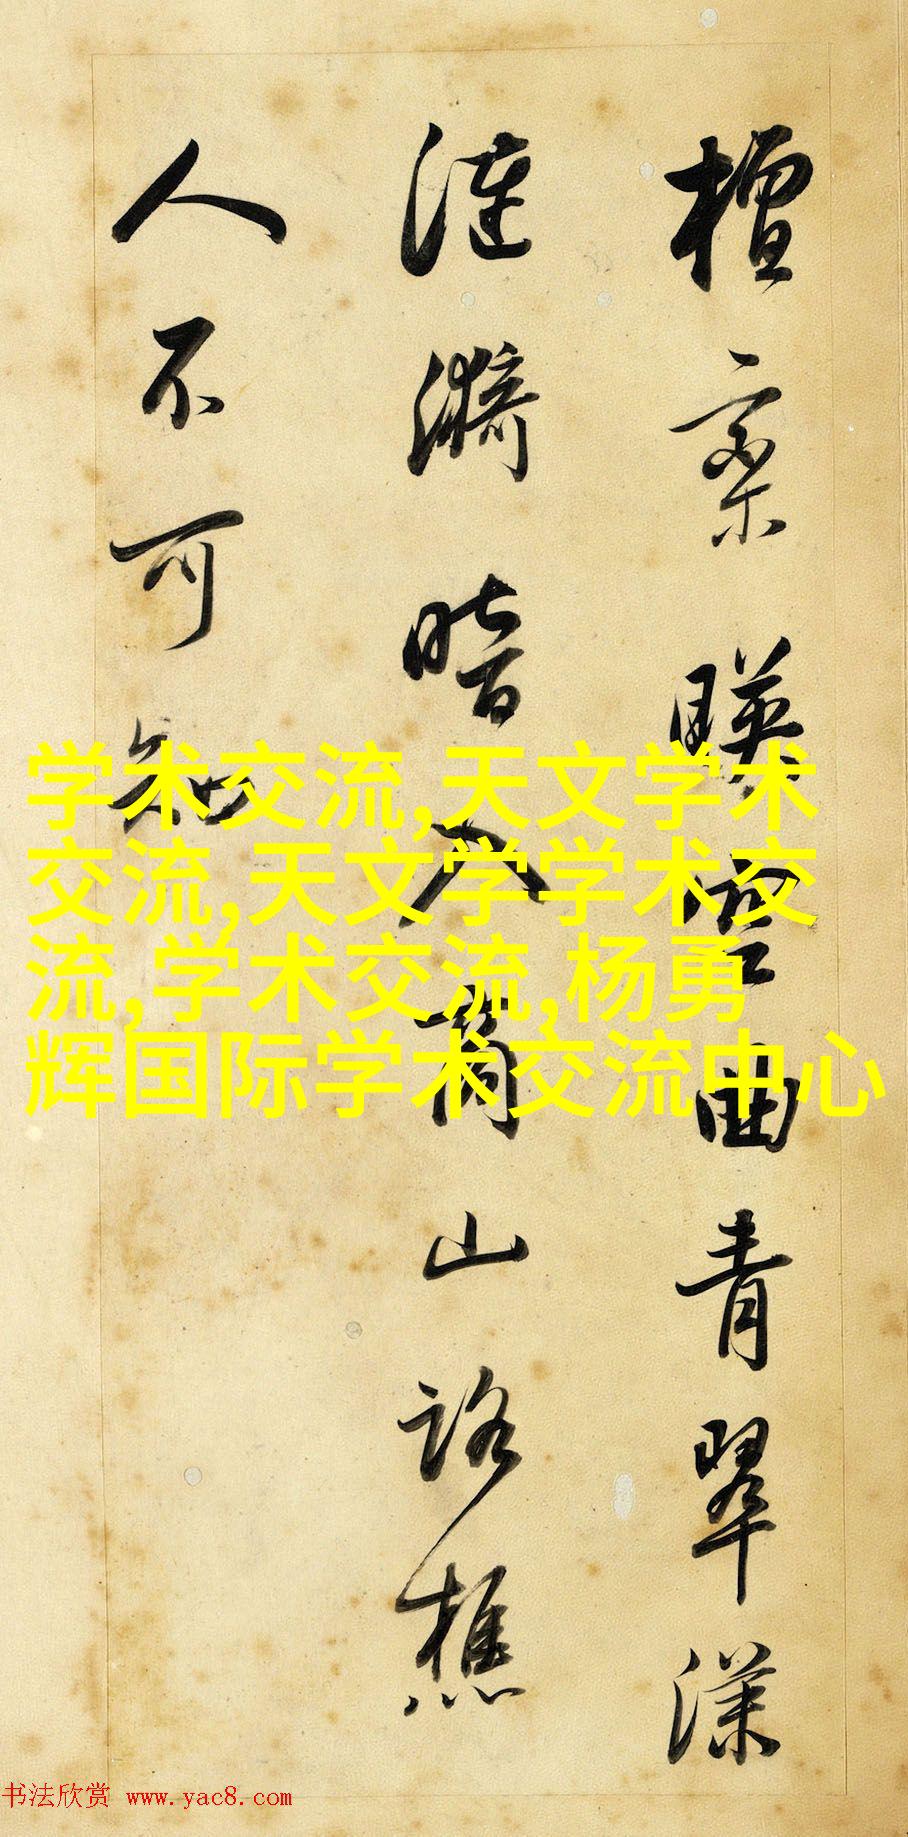 檀栾暎空曲青翠漾
漣漪暗入商山路樵
人不可知
学术交流,天文学术
交流,天文学学术交
流,学术交流,杨勇
辉国际学术交流中心
书法欣赏 www.yac8.com